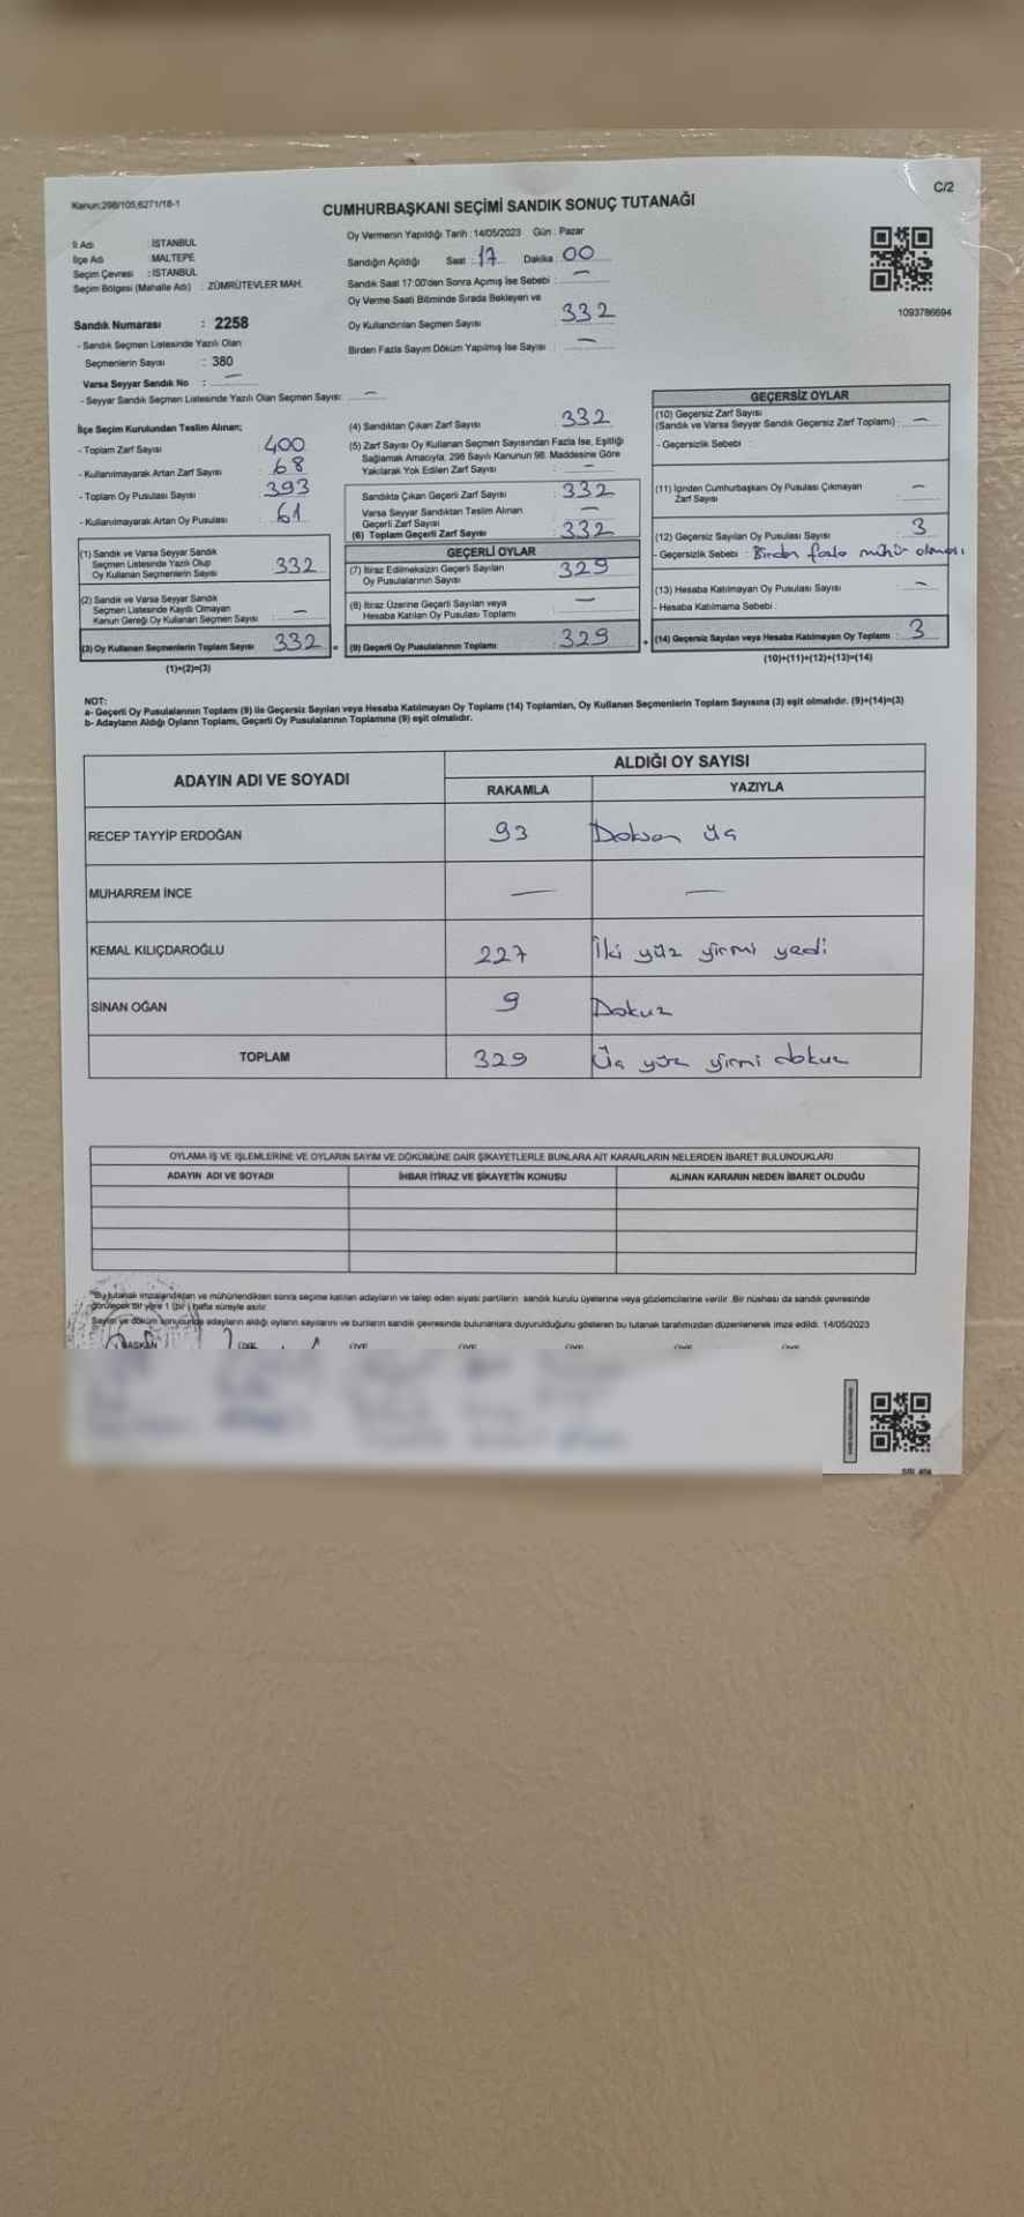 Kanun:298/105,6271/18-1
C/2
CUMHURBAŞKANI SEÇİMİ SANDIK SONUÇ TUTANAĞI
İl Adı : İSTANBUL
İlçe Adı : MALTEPE
Seçim Çevresi : İSTANBUL
Seçim Bölgesi (Mahalle Adı) : ZÜMRÜTEVLER MAH.
Sandık Numarası : 2258
- Sandık Seçmen Listesinde Yazılı Olan
Seçmenlerin Sayısı : 380
Varsa Seyyar Sandık No : —
- Seyyar Sandık Seçmen Listesinde Yazılı Olan Seçmen Sayısı: —
Oy Vermenin Yapıldığı Tarih : 14/05/2023 Gün : Pazar
Sandığın Açıldığı Saat : 17 Dakika : 00
Sandık Saat 17:00'den Sonra Açımış İse Sebebi : —
Oy Verme Saati Bitiminde Sırada Bekleyen ve
Oy Kullandırılan Seçmen Sayısı : 332
Birden Fazla Sayım Döküm Yapılmış İse Sayısı : —
1093786694
İlçe Seçim Kurulundan Teslim Alınan;
- Toplam Zarf Sayısı : 400
- Kullanılmayarak Artan Zarf Sayısı : 68
- Toplam Oy Pusulası Sayısı : 393
- Kullanılmayarak Artan Oy Pusulası : 61
(1) Sandık ve Varsa Seyyar Sandık
Seçmen Listesinde Yazılı Olup
Oy Kullanan Seçmenlerin Sayısı 332
(2) Sandık ve Varsa Seyyar Sandık
Seçmen Listesinde Kayıtlı Olmayan
Kanun Gereği Oy Kullanan Seçmen Sayısı —
(3) Oy Kullanan Seçmenlerin Toplam Sayısı 332 =
(1)+(2)=(3)
(4) Sandıktan Çıkan Zarf Sayısı : 332
(5) Zarf Sayısı Oy Kullanan Seçmen Sayısından Fazla İse, Eşitliği
Sağlamak Amacıyla, 298 Sayılı Kanunun 98. Maddesine Göre
Yakılarak Yok Edilen Zarf Sayısı : —
Sandıkta Çıkan Geçerli Zarf Sayısı : 332
Varsa Seyyar Sandıktan Teslim Alınan
Geçerli Zarf Sayısı —
(6) Toplam Geçerli Zarf Sayısı : 332
GEÇERLİ OYLAR
(7) İtiraz Edilmeksizin Geçerli Sayılan
Oy Pusulalarının Sayısı : 329
(8) İtiraz Üzerine Geçerli Sayılan veya
Hesaba Katılan Oy Pusulası Toplamı : —
(9) Geçerli Oy Pusulalarının Toplamı : 329 +
GEÇERSİZ OYLAR
(10) Geçersiz Zarf Sayısı
(Sandık ve Varsa Seyyar Sandık Geçersiz Zarf Toplamı) : —
- Geçersizlik Sebebi :
(11) İçinden Cumhurbaşkanı Oy Pusulası Çıkmayan
Zarf Sayısı : —
(12) Geçersiz Sayılan Oy Pusulası Sayısı : 3
- Geçersizlik Sebebi : Birden fazla mühür olması
(13) Hesaba Katılmayan Oy Pusulası Sayısı : —
- Hesaba Katılmama Sebebi :
(14) Geçersiz Sayılan veya Hesaba Katılmayan Oy Toplamı : 3
(10)+(11)+(12)+(13)=(14)
NOT:
a- Geçerli Oy Pusulalarının Toplamı (9) ile Geçersiz Sayılan veya Hesaba Katılmayan Oy Toplamı (14) Toplamları, Oy Kullanan Seçmenlerin Toplam Sayısına (3) eşit olmalıdır. (9)+(14)=(3)
b- Adayların Aldığı Oyların Toplamı, Geçerli Oy Pusulalarının Toplamına (9) eşit olmalıdır.
ADAYIN ADI VE SOYADI
ALDIĞI OY SAYISI
RAKAMLA YAZIYLA
RECEP TAYYİP ERDOĞAN 93 Doksan üç
MUHARREM İNCE — —
KEMAL KILIÇDAROĞLU 227 İki yüz yirmi yedi
SİNAN OĞAN 9 Dokuz
TOPLAM 329 Üç yüz yirmi dokuz
OYLAMA İŞ VE İŞLEMLERİNE VE OYLARIN SAYIM VE DÖKÜMÜNE DAİR ŞİKAYETLERLE BUNLARA AİT KARARLARIN NELERDEN İBARET BULUNDUKLARI
ADAYIN ADI VE SOYADI İHBAR İTİRAZ VE ŞİKAYETİN KONUSU ALINAN KARARIN NEDEN İBARET OLDUĞU
"Bu tutanak imzalandıktan ve mühürlendikten sonra seçime katılan adayların ve talep eden siyasi partilerin sandık kurulu üyelerine veya gözlemcilerine verilir. Bir nüshası da sandık çevresinde
görülecek bir yere 1 (bir) hafta süreyle asılır.
Sayım ve döküm sonucunda adayların aldığı oyların sayılarını ve bunların sandık çevresinde bulunanlara duyurulduğunu gösteren bu tutanak tarafımızdan düzenlenerek imza edildi. 14/05/2023
BAŞKAN ÜYE ÜYE ÜYE ÜYE ÜYE ÜYE